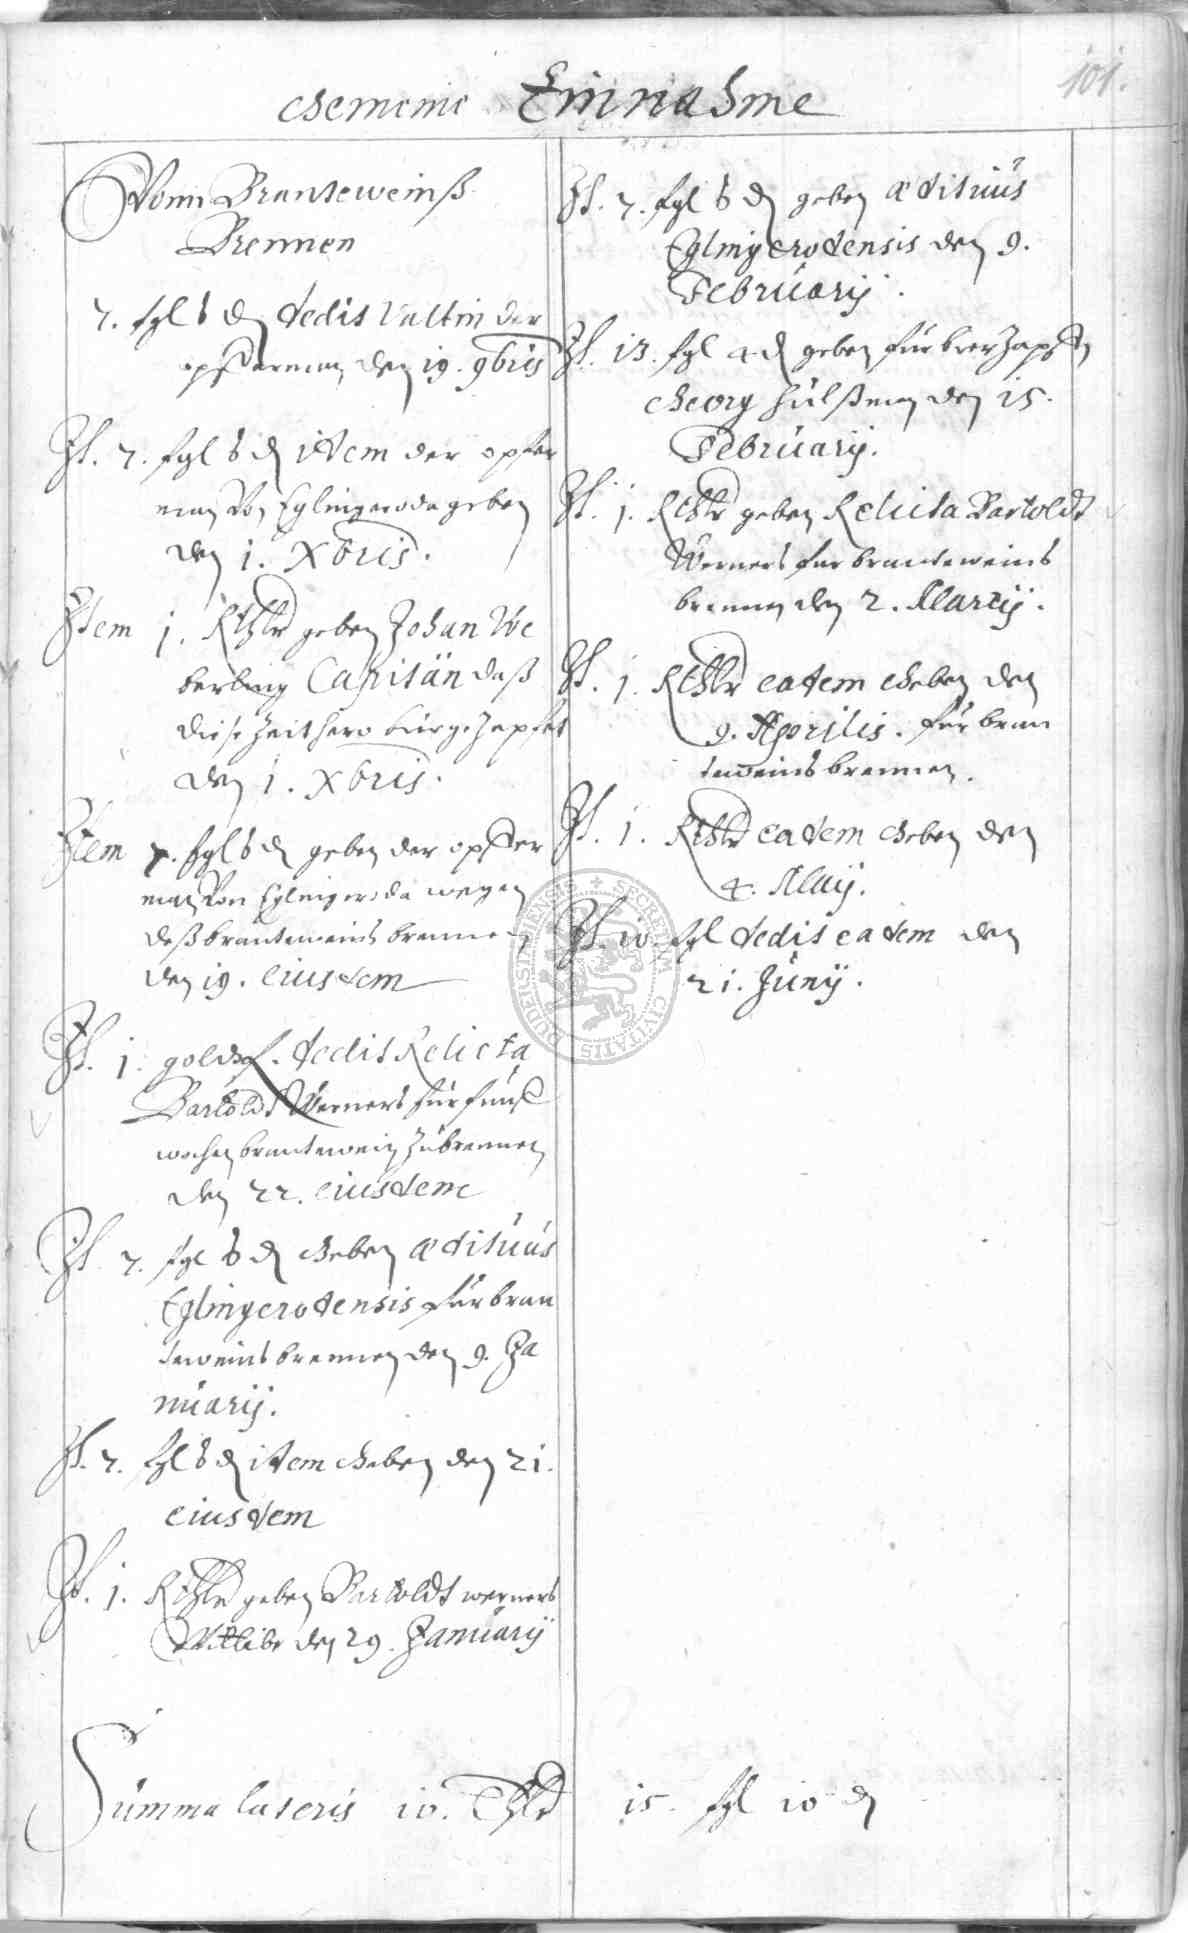 101.
Gemeine Einnahme
Vom Branteweinß
Brennen
7. ßgl 8 ₰ dedit Valtin der
opfferman den 19. 9bris
It. 7. ßgl 8 ₰ item der opffer
man Von Eglingeroda geben
den 1. Xbris.
Item 1. Rthlr geben Johan We
berling Capitän daß
diese Zeit hero bier gezapfet
den 1. Xbris.
Item 7. ßgl 8 ₰ geben der opffer
man Von Eglingeroda wegen
deß branteweins brennen
den 19. eiusdem
It. 1. goldfl. dedit Relicta
Bartoldt Werners für fünff
wochen brantewein zubrennen
den 22. eiusdem
It. 7. ßgl 8 ₰ Geben ædituus
Eglingerodensis für bran
teweins brennen den 9. Ja
nuarij.
It. 7. ßgl 8 ₰ item Geben den 21.
eiusdem
It. 1. Rthlr geben Bartoldt werners
Wittibe den 29. Januarij
It. 7. ßgl 8 ₰ geben ædituus
Eglingerodensis den 9.
Februarij.
It. 13. ßgl 4 ₰ geben für bier Zapffen
Georg Hülßman den 15.
Februarij.
It. 1. Rthlr geben Relicta Bartoldt
Werners für branteweins
brennen den 2. Martij.
It. 1. Rthlr eadem Geben den
9. Aprilis. für bran
teweins brennen.
It. 1. Rthlr eadem Geben den
4. Maij.
It. 10. ßgl dedit eadem den
21. Junij.
SECRETUM CIVITATIS DUDERSTADENSIS
Summa lateris 10. Thlr 15. ßgl 10 ₰